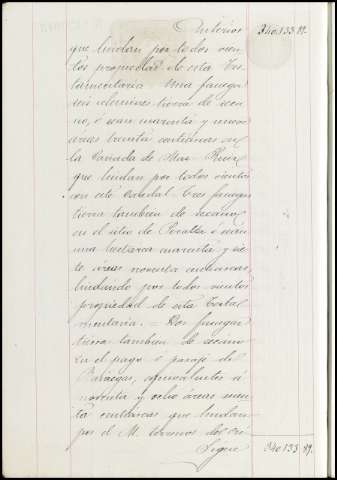 Anterior 340.133 99.
que lindan por todos vien
tos propiedad de esta Tes
tamentaria. Una fanega
seis celemines tierra de seca
no, o sean cuarenta y nueve
áreas treinta centiáreas en
la Cañada de Mar
que lindan por todos vientos
con este Caudal. Tres fanegas
tierra tambien de secano
en el sitio de o sean
una hectarea cuarenta y sie
te áreas noventa centiareas
lindando por todos vientos
propiedad de esta Testa
mentaria. = Dos fanegas
tierra tambien de secano
en el pago o parage de
equivalentes á
noventa y ocho áreas sesen
ta centiáreas que lindan
por el M. terrenos de
Sigue 340.133 99.